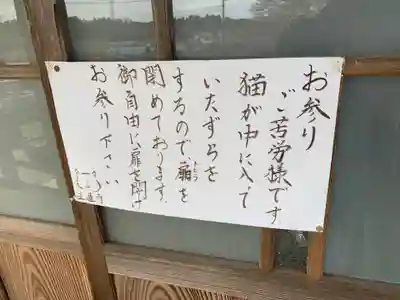 お参り
ご苦労様です
猫が中に入って
いたずらを
するので、扉を
閉めております。
御自由に扉を開け
お参り下さい